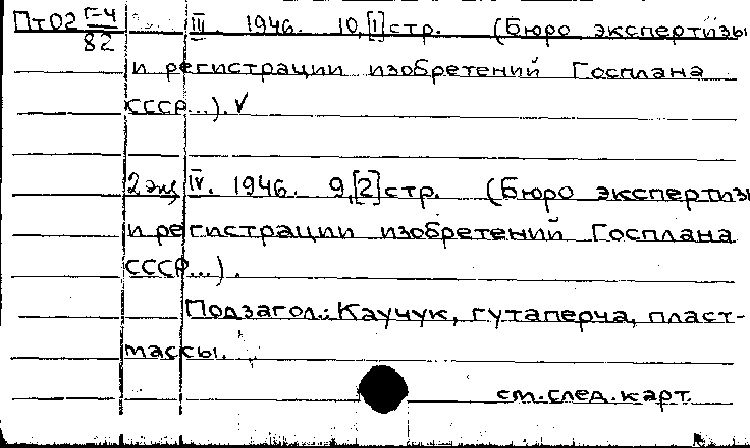 Пт02 Г-4 III. 1946. 10,[1]стр. (Бюро экспертизы
82
и регистрации изобретений Госплана
СССР...). V
2 экз IV. 1946. 9,[2]стр. (Бюро экспертизы
и регистрации изобретений Госплана
СССР...).
Подзагол.: Каучук, гутаперча, пласт-
массы.
см.след.карт.